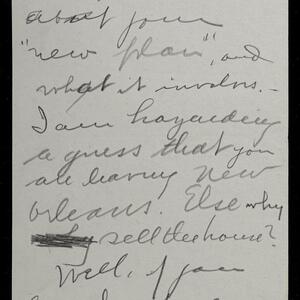 about your
"new plan", and
what it involves. -
I am hazarding
a guess that you
are leaving New
Orleans. Else why
sell the house?
Well, if you